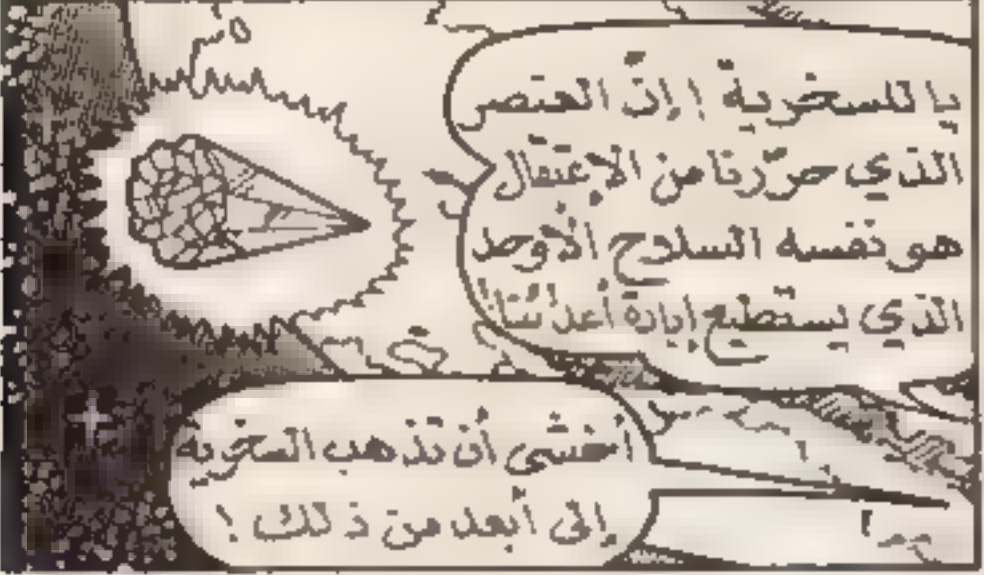 يا للسخرية ! إنّ العنصر
الذي حرّرنا من الإعتقال
هو نفسه السلاح الأوحد
الذي يستطيع إبادة أعدائنا
أخشى أن تذهب السخرية
إلى أبعد من ذلك !